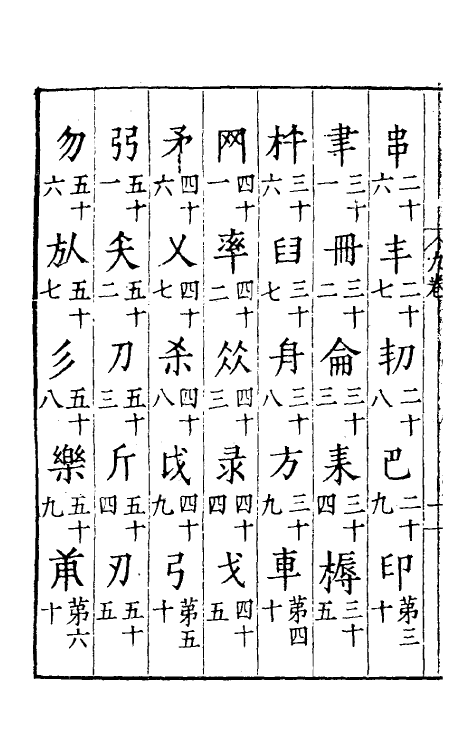 串 二十六 丰 二十七 㓞 二十八 巴 二十九 印 第三十
聿 三十一 冊 三十二 侖 三十三 耒 三十四 槈 三十五
三十六 臼 三十七 身 三十八 方 三十九 車 第四十
网 四十一 率 四十二 四十三 录 四十四 戈 四十五
矛 四十六 乂 四十七 杀 四十八 戉 四十九 弓 第五十
弜 五十一 矢 五十二 刀 五十三 斤 五十四 刃 五十五
勿 五十六 㫃 五十七 彡 五十八 樂 五十九 𤰇 第六十
九卷